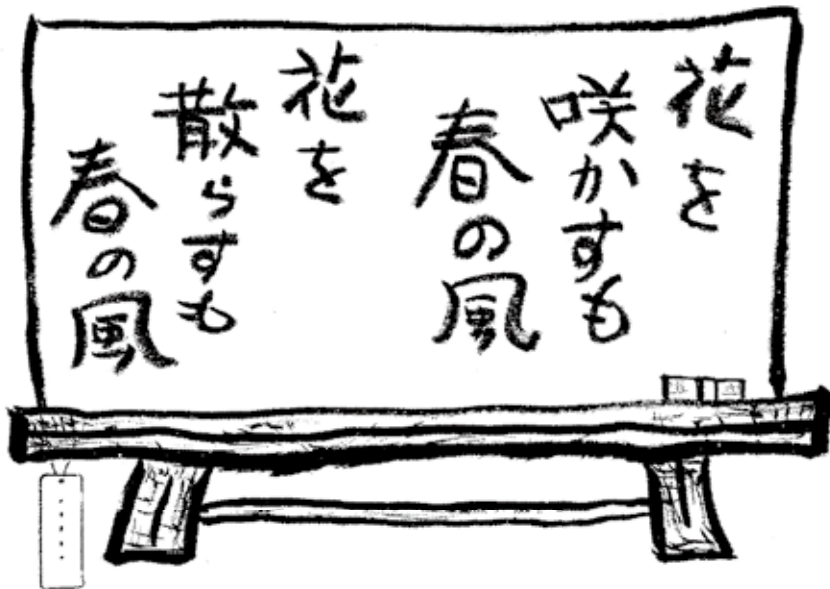 花を
咲かすも
春の風
花を
散らすも
春の風